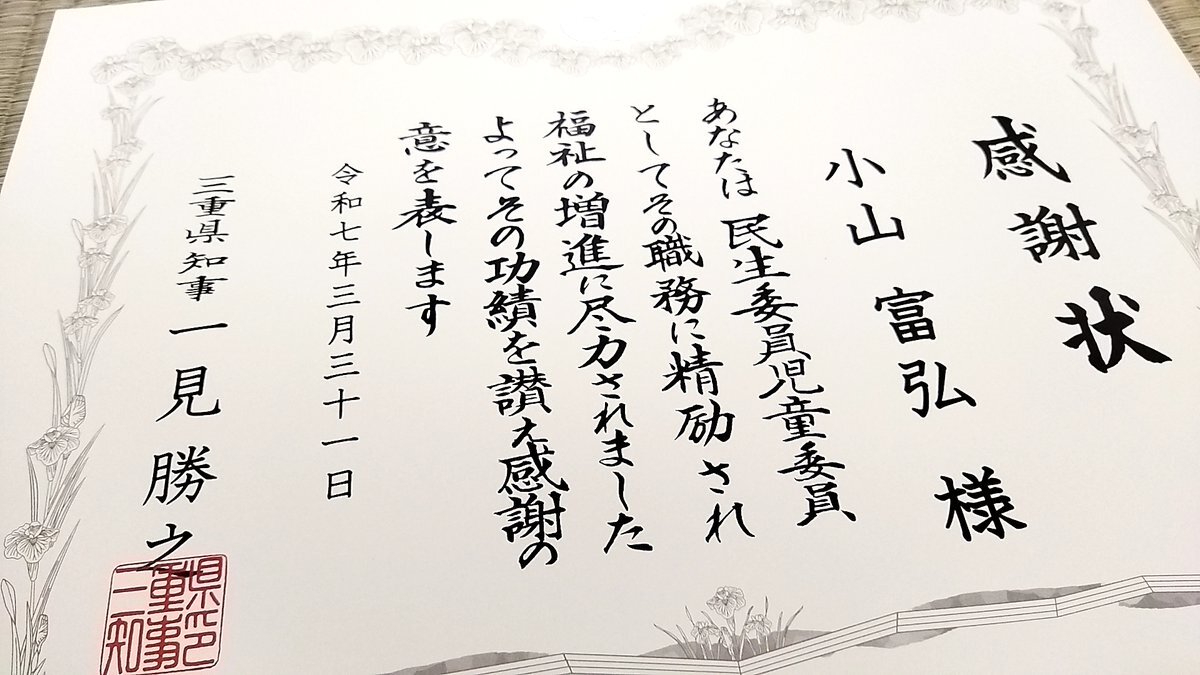 感謝状
小山富弘様
あなたは民生委員児童委員
としてその職務に精励され
福祉の増進に尽力されました
よってその功績を讃え感謝の
意を表します
令和七年三月三十一日
三重県知事 一見勝之
三重県知事印